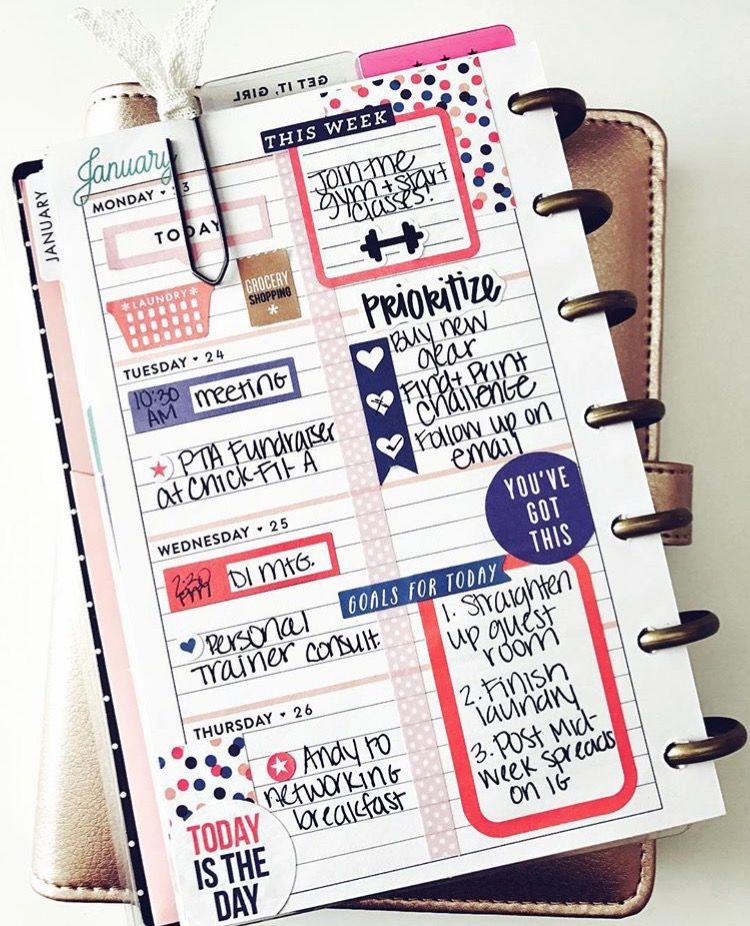 GET IT, GIRL
JANUARY
January
MONDAY 23
TODAY
LAUNDRY
GROCERY
SHOPPING
TUESDAY 24
10:30
AM
meeting
PTA Fundraiser
at Chick-Fil-A
WEDNESDAY 25
2:30
DI mtg.
Personal
Trainer consult.
THURSDAY 26
Andy to
networking
breakfast
TODAY
IS THE
DAY
THIS WEEK
Join the
gym + start
classes!
PRIORITIZE
Buy new
gear
Find + Print
Challenge
Follow up on
email
YOU'VE
GOT
THIS
GOALS FOR TODAY
1. Straighten
up guest
room
2. Finish
laundry
3. Post Mid-
week spreads
on IG